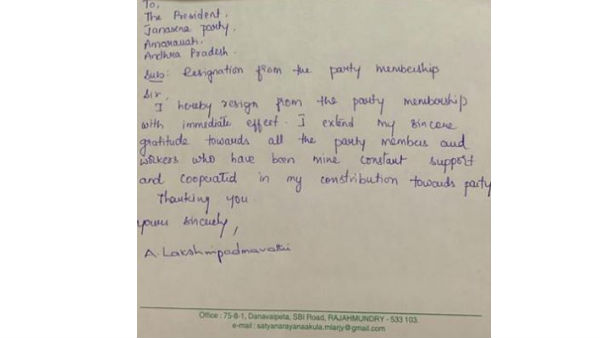 To,
The President,
Janasena party,
Amaravati,
Andhra Pradesh.
Sub: Resignation from the party membership
Sir,
I hereby resign from the party membership
with immediate effect. I extend my sincere
gratitude towards all the party members and
workers who have been mine constant support
and cooperated in my constribution towards party
Thanking you
yours sincerely,
A. Lakshmipadmavathi
Office : 75-8-1, Danavaipeta, SBI Road, RAJAHMUNDRY - 533 103.
e-mail : satyanarayanaakula.mlarjy@gmail.com